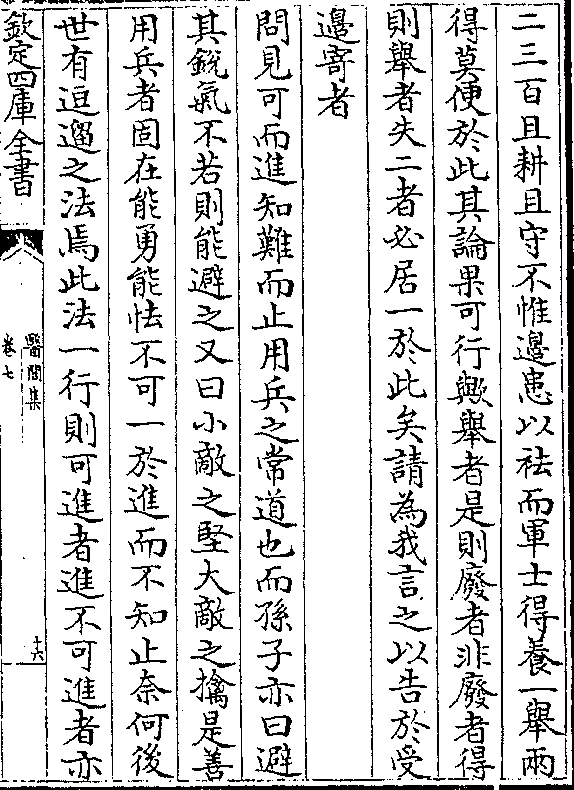 二三百且耕且守不惟邊患以袪而軍士得養一舉兩
得莫便於此其論果可行歟舉者是則廢者非廢者得
則舉者失二者必居一於此矣請為我言之以告於受
邊寄者
問見可而進知難而止用兵之常道也而孫子亦曰避
其銳氣不若則能避之又曰小敵之堅大敵之擒是善
用兵者固在能勇能怯不可一於進而不知止奈何後
世有逗遛之法焉此法一行則可進者進不可進者亦
欽定四庫全書
醫閭集
卷七
十六